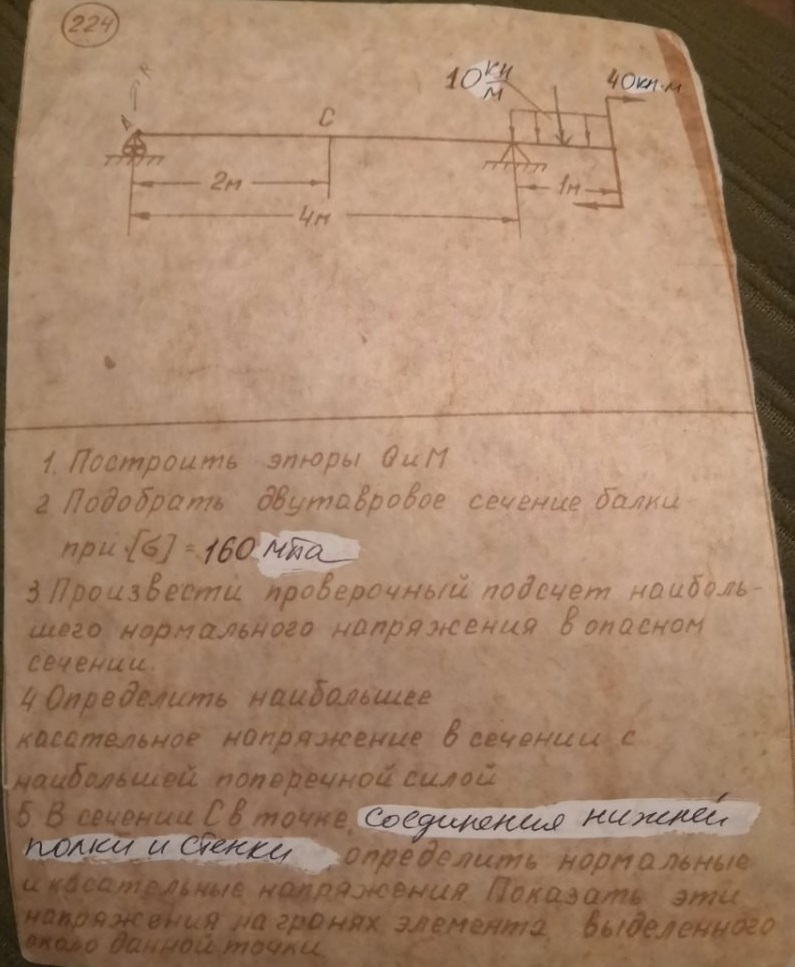 224
10 кн/м
40кн·м
A
C
2м
1м
4м
1. Построить эпюры Q и М
2 Подобрать двутавровое сечение балки
при [σ] = 160 мпа
3 Произвести проверочный подсчет наиболь-
шего нормального напряжения в опасном
сечении.
4 Определить наибольшее
касательное напряжение в сечении с
наибольшей поперечной силой
5 В сечении С в точке, соединения нижней
полки и стенки, определить нормальные
и касательные напряжения Показать эти
напряжения на гранях элемента, выделенного
около данной точки